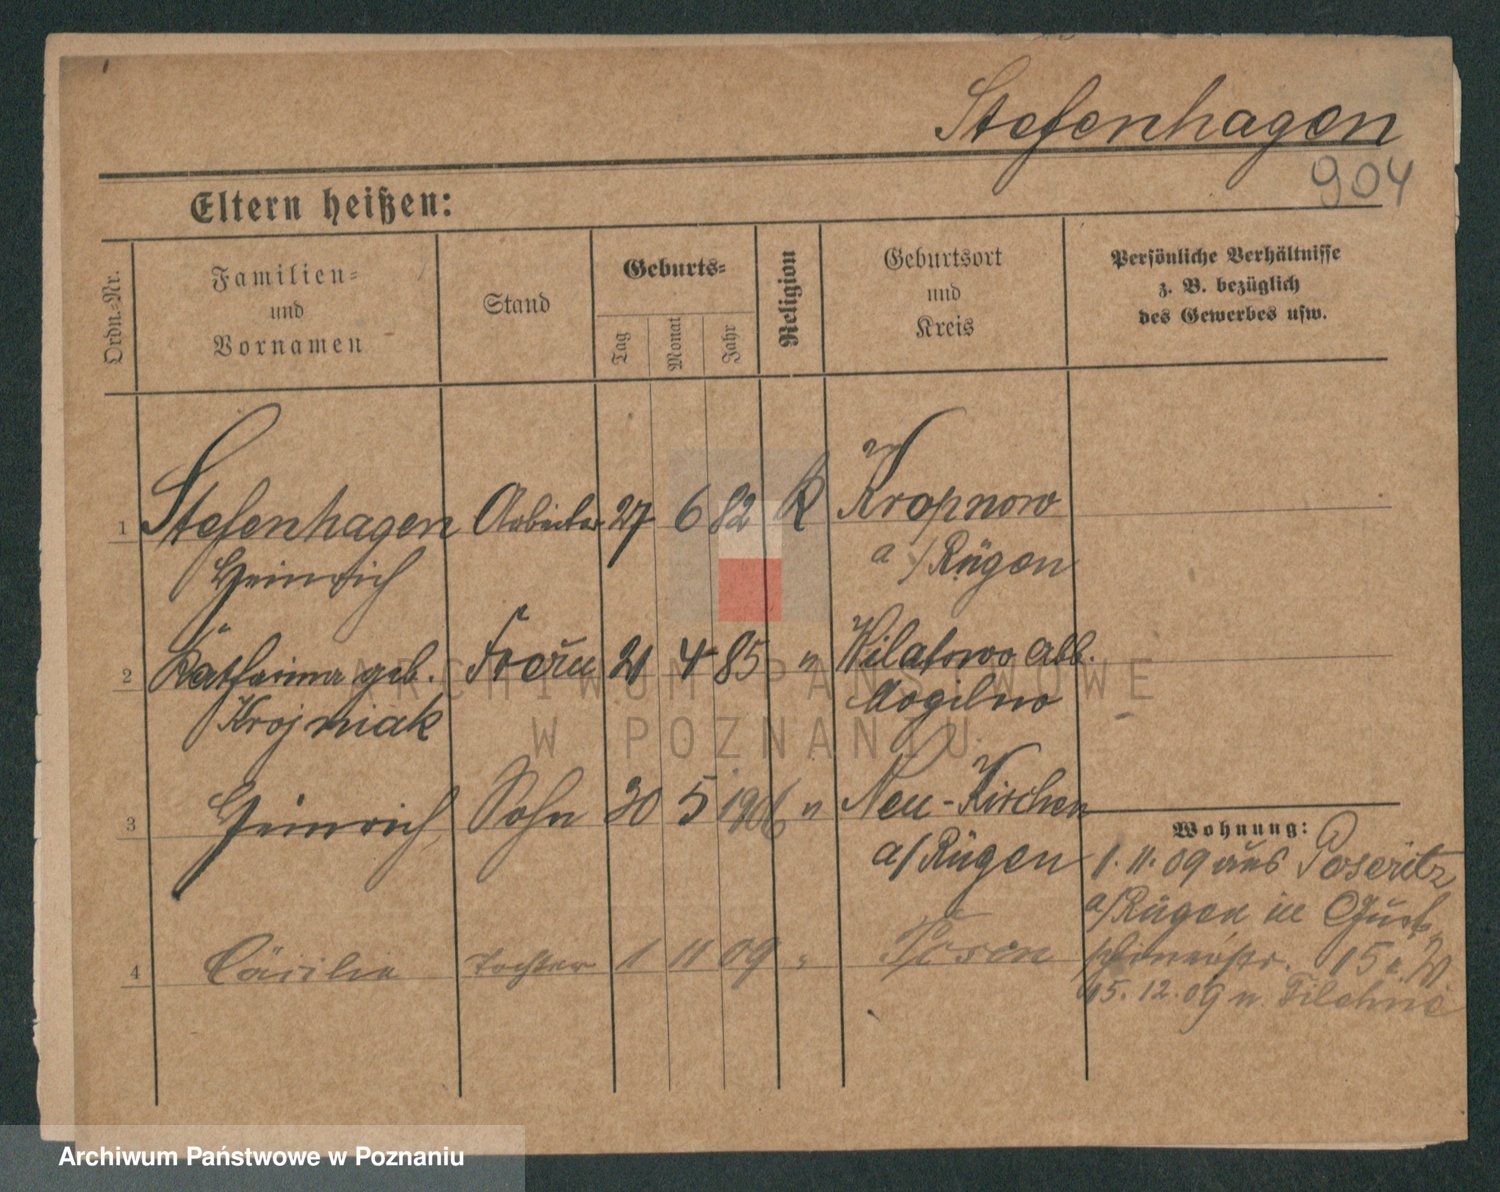 Stefenhagen
904
Eltern heißen:
Ordn.-Nr.
Familien-
und
Vornamen
Stand
Geburts-
Tag
Monat
Jahr
Religion
Geburtsort
und
Kreis
Persönliche Verhältnisse
z. B. bezüglich
des Gewerbes usw.
1 Stefenhagen Arbeiter 27 6 82 K Kropnow
Heinrich a/Rügen
2 Katharina geb. Frau 21 4 85 " Wilatowo Abb.
Krojniak Mogilno
3 Heinrich, Sohn 30 5 1906 " Neu-Kirchen
a/Rügen
Wohnung:
1. 11. 09 aus Poseritz
a/Rügen in
15
4 Cäcilie Tochter 1 11 09 " Posen
15. 12. 09 n. Filehne
ARCHIWUM PAŃSTWOWE
W POZNANIU
Archiwum Państwowe w Poznaniu